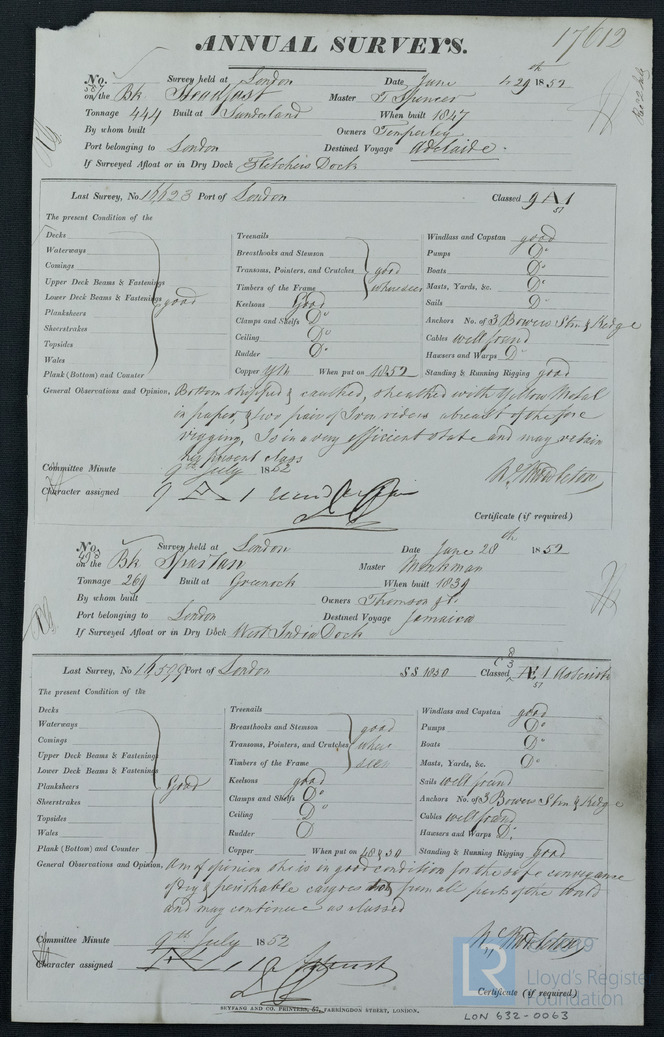 17612
ANNUAL SURVEYS.
No. 567 Survey held at London Date June 29th 1852
on the Bk Steadfast Master T Spencer
Tonnage 444 Built at Sunderland When built 1847
By whom built Owners Temperley
Port belonging to London Destined Voyage Adelaide.
If Surveyed Afloat or in Dry Dock Fletchers Dock
Last Survey, No. 16623 Port of London Classed 9 A 1 51
The present Condition of the
Decks
Waterways
Comings
Upper Deck Beams & Fastenings
Lower Deck Beams & Fastenings good
Planksheers
Sheerstrakes
Topsides
Wales
Plank (Bottom) and Counter
Treenails
Breasthooks and Stemson
Transoms, Pointers, and Crutches good
Timbers of the Frame where seen
Keelsons Good
Clamps and Shelfs Do
Ceiling Do
Rudder Do
Copper YM When put on 1852
Windlass and Capstan good
Pumps Do
Boats Do
Masts, Yards, &c. Do
Sails Do
Anchors No. of 3 Bowers Strm & Kedge
Cables well found
Hawsers and Warps Do
Standing & Running Rigging good
General Observations and Opinion, Bottom stripped & caulked, sheathed with Yellow Metal
in paper, & two pair of Iron riders abreast of the fore
rigging, Is in a very efficient state and may retain
her present class
Committee Minute 9th July 1852
Character assigned 9 A 1
Certificate (if required)
No. Survey held at London Date June 28th 1852
on the Bk Spartan Master Monkman
Tonnage 269 Built at Greenock When built 1839
By whom built Owners Thomson
Port belonging to London Destined Voyage Jamaica
If Surveyed Afloat or in Dry Dock West India Dock
Last Survey, No 16599 Port of London SS 1850 Classed Æ 1 Asterisk 51
The present Condition of the
Decks
Waterways
Comings
Upper Deck Beams & Fastenings
Lower Deck Beams & Fastenings
Planksheers Good
Sheerstrakes
Topsides
Wales
Plank (Bottom) and Counter
Treenails
Breasthooks and Stemson good
Transoms, Pointers, and Crutches where
Timbers of the Frame seen
Keelsons good
Clamps and Shelfs Do
Ceiling Do
Rudder D
Copper When put on 48 & 50
Windlass and Capstan good
Pumps Do
Boats Do
Masts, Yards, &c. Do
Sails well found
Anchors No. of 3 Bowers Strm & Kedge
Cables well found
Hawsers and Warps Do.
Standing & Running Rigging good
General Observations and Opinion, Am of opinion she is in good condition for the safe conveyance
of dry & perishable cargoes from all parts of the World
and may continue as classed
Committee Minute 9th July 1852
Character assigned
Certificate (if required)
SEYFANG AND CO. PRINTERS, 57, FARRINGDON STREET, LONDON.
LR
Lloyd's Register
Foundation
LON 632-0063